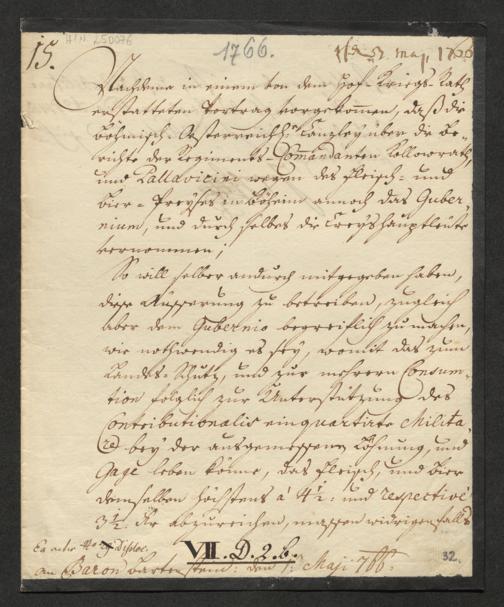 15. HIN 250076 1766. 1766
Nachdeme in einem von dem Hof-Kriegs-Rath
erstatteten Vortrag vorgekom̅en, daß die
Böhmisch-Oesterreichische Canzley über die Be-
richte der Regiments-Com̅andanten Kollowrath,
und Pallavicini wegen des Fleisch- und
Bier-Preyses in Böheim annoch das Guber-
nium, und durch selbes die Creyshauptleute
vernommen;
So will selber andurch mitgegeben haben,
diese Aeusserung zu betreiben, zugleich
aber dem Gubernio begreiflich zu machen,
wie nothwendig es sey, womit das zum
Landes-Schutz, und zur mehreren Consum-
tion folglich zur Unterstützung des
Contributionalis einquartirte Milita-
re bey der ausgemessenen Löhnung, und
Gage leben könne, das Fleisch, und Bier
demselben höchstens à 4½: und respectivè
3½ Kr abzureichen, massen widrigenfalls
VII. D. 2. b. 32.
an Baron Bartenstein: den 1: Maji 766.